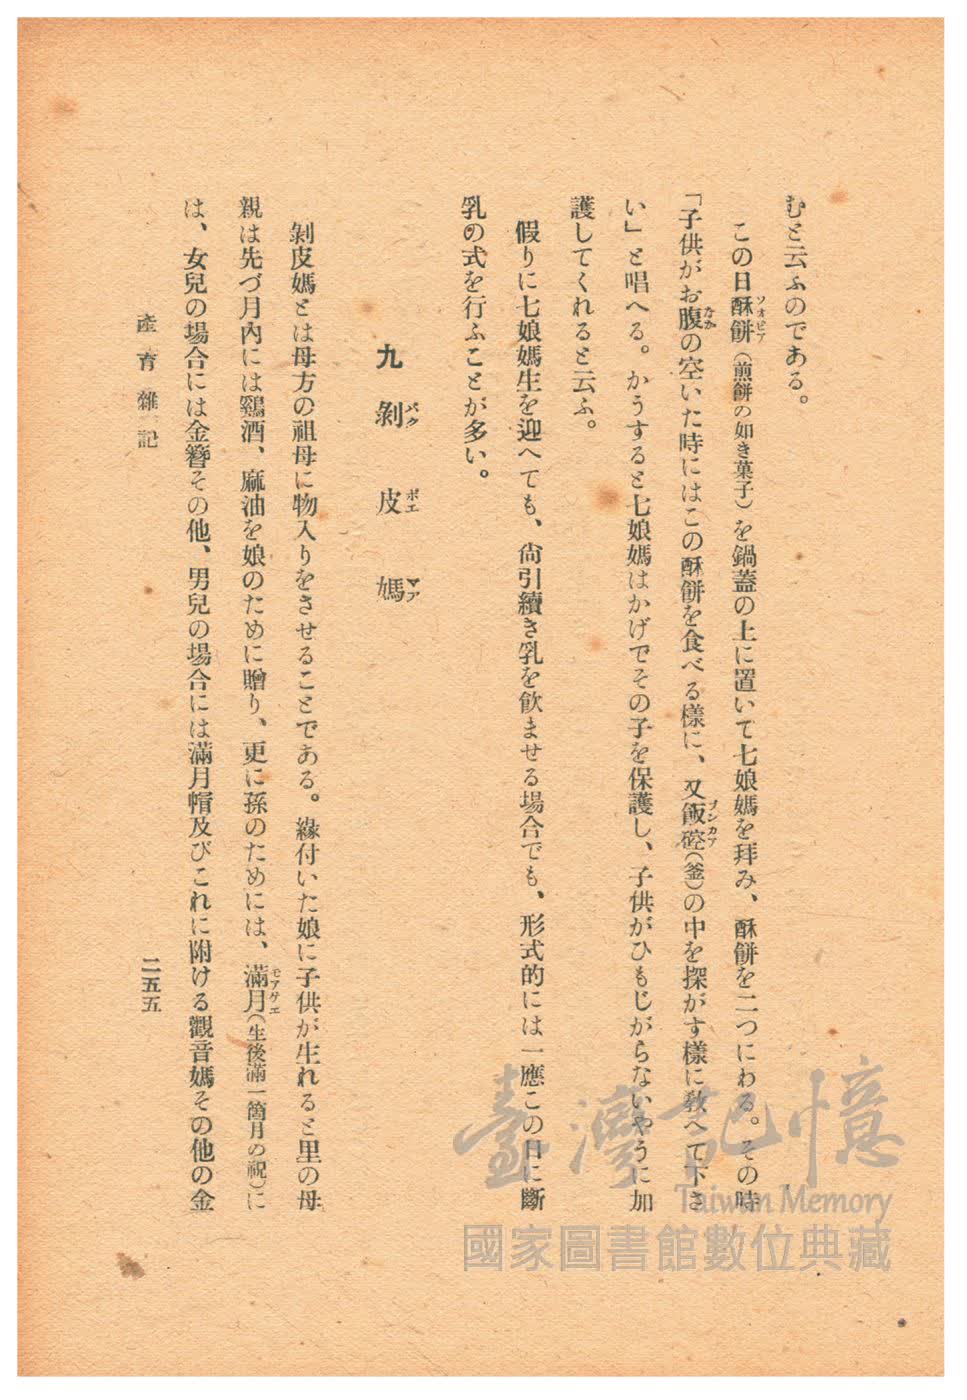 むと云ふのである。
この日酥餅（煎餅の如き菓子）を鍋蓋の上に置いて七娘媽を拜み、酥餅を二つにわる。その時
ソオピア
「子供がお腹の空いた時にはこの酥餅を食べる樣に、又飯硿（釜）の中を探がす樣に敎へて下さ
なか
い」と唱へる。かうすると七娘媽はかげでその子を保護し、子供がひもじがらないやうに加
護してくれると云ふ。
假りに七娘媽生を迎へても、尙引續き乳を飮ませる場合でも、形式的には一應この日に斷
乳の式を行ふことが多い。
九 剝皮媽
パク ポエ マア
剝皮媽とは母方の祖母に物入りをさせることである。緣付いた娘に子供が生れると里の母
親は先づ月內には鷄酒、麻油を娘のために贈り、更に孫のためには、滿月（生後滿一箇月の祝）に
モアゲエ
は、女兒の場合には金簪その他、男兒の場合には滿月帽及びこれに附ける觀音媽その他の金
產育雜記
二五五
臺灣記憶
Taiwan Memory
國家圖書館數位典藏